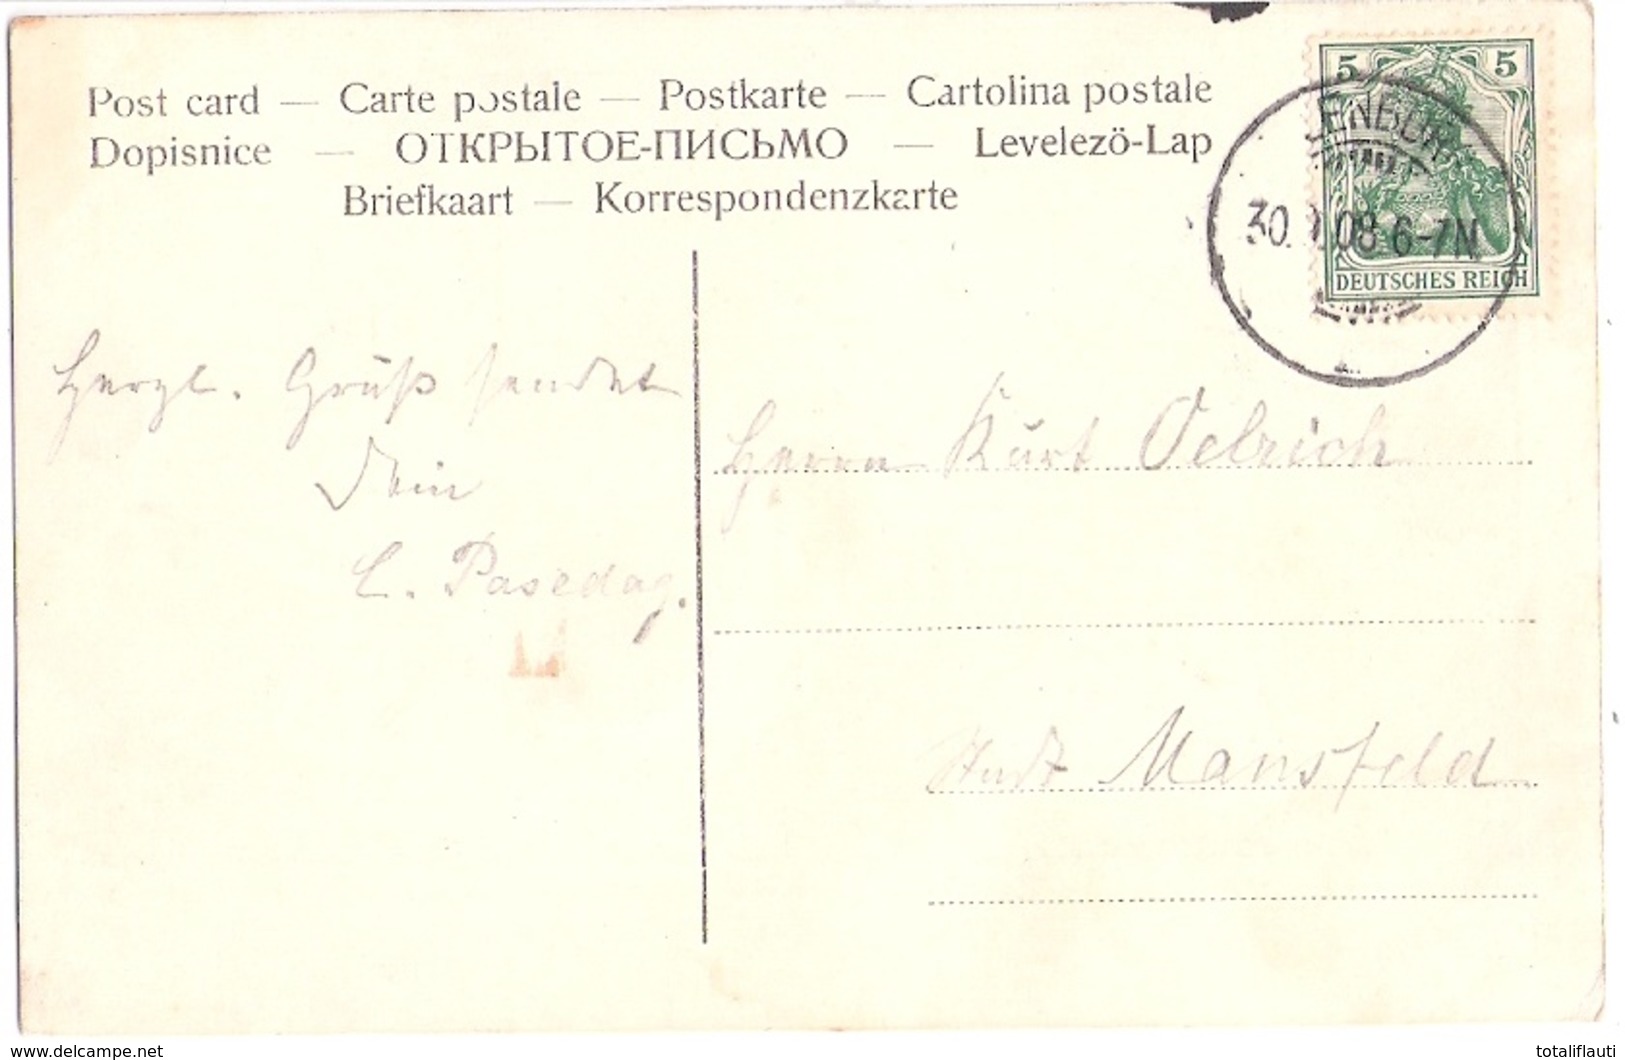 Post card — Carte postale — Postkarte — Cartolina postale
Dopisnice — ОТКРЫТОЕ-ПИСЬМО — Levelezö-Lap
Briefkaart — Korrespondenzkarte
5 5
30. .08 6-7N
DEUTSCHES REICH
Herzl. Gruß sendet
Dein
Herrn Kurt Oelrich
C. Pasedag.
Stadt Mansfeld
www.delcampe.net
totaliflauti